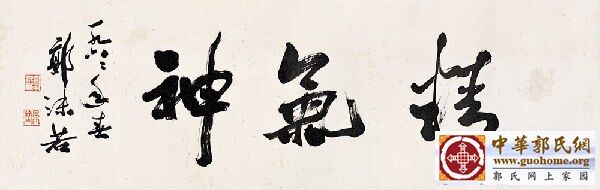 精氣神
一九六二年春
郭沫若
中華郭氏網
www.guohome.org
郭氏网上家园